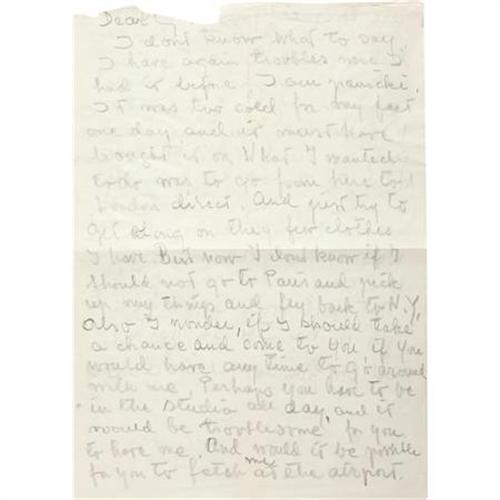 Dear
I dont know what to say.
I have again troubles me I
had it before. I am panicki.
It was too cold for my feet
one day and it must have
brought it on. What I wanted
to do was to go from here to
London direct. And just try to
get along on they few clothes
I have But now I dont know if I
should not go to Paris and pick
up my things and fly back to N.Y.
Also I wonder, if I should take
a chance and come to you if you
would have any time to go around
with me. Perhaps you have to be
in the studio all day, and it
would be troublesome for you
to have me. And would to be possible
for you to fetch me at the airport.